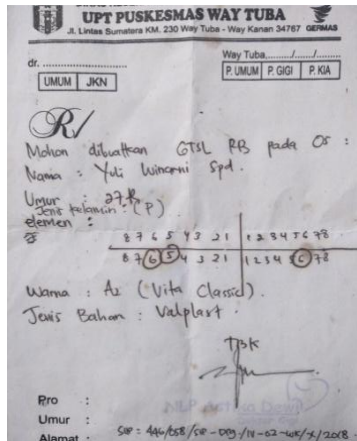 UPT PUSKESMAS WAY TUBA
Jl. Lintas Sumatera KM. 230 Way Tuba - Way Kanan 34767
GERMAS
dr.
Way Tuba,......../......./........
UMUM JKN
P. UMUM P. GIGI P. KIA
R/
Mohon dibuatkan GTSL RB pada Os :
Nama : Yuli Winarni Spd.
Umur : 27 th
Jenis kelamin : (P)
elemen :
8 7 6 5 4 3 2 1 1 2 3 4 5 6 7 8
8 7 6 5 4 3 2 1 1 2 3 4 5 6 7 8
Warna : A2 (Vita Classic).
Jenis Bahan : Valplast.
TBK
Pro :
Umur :
Alamat :